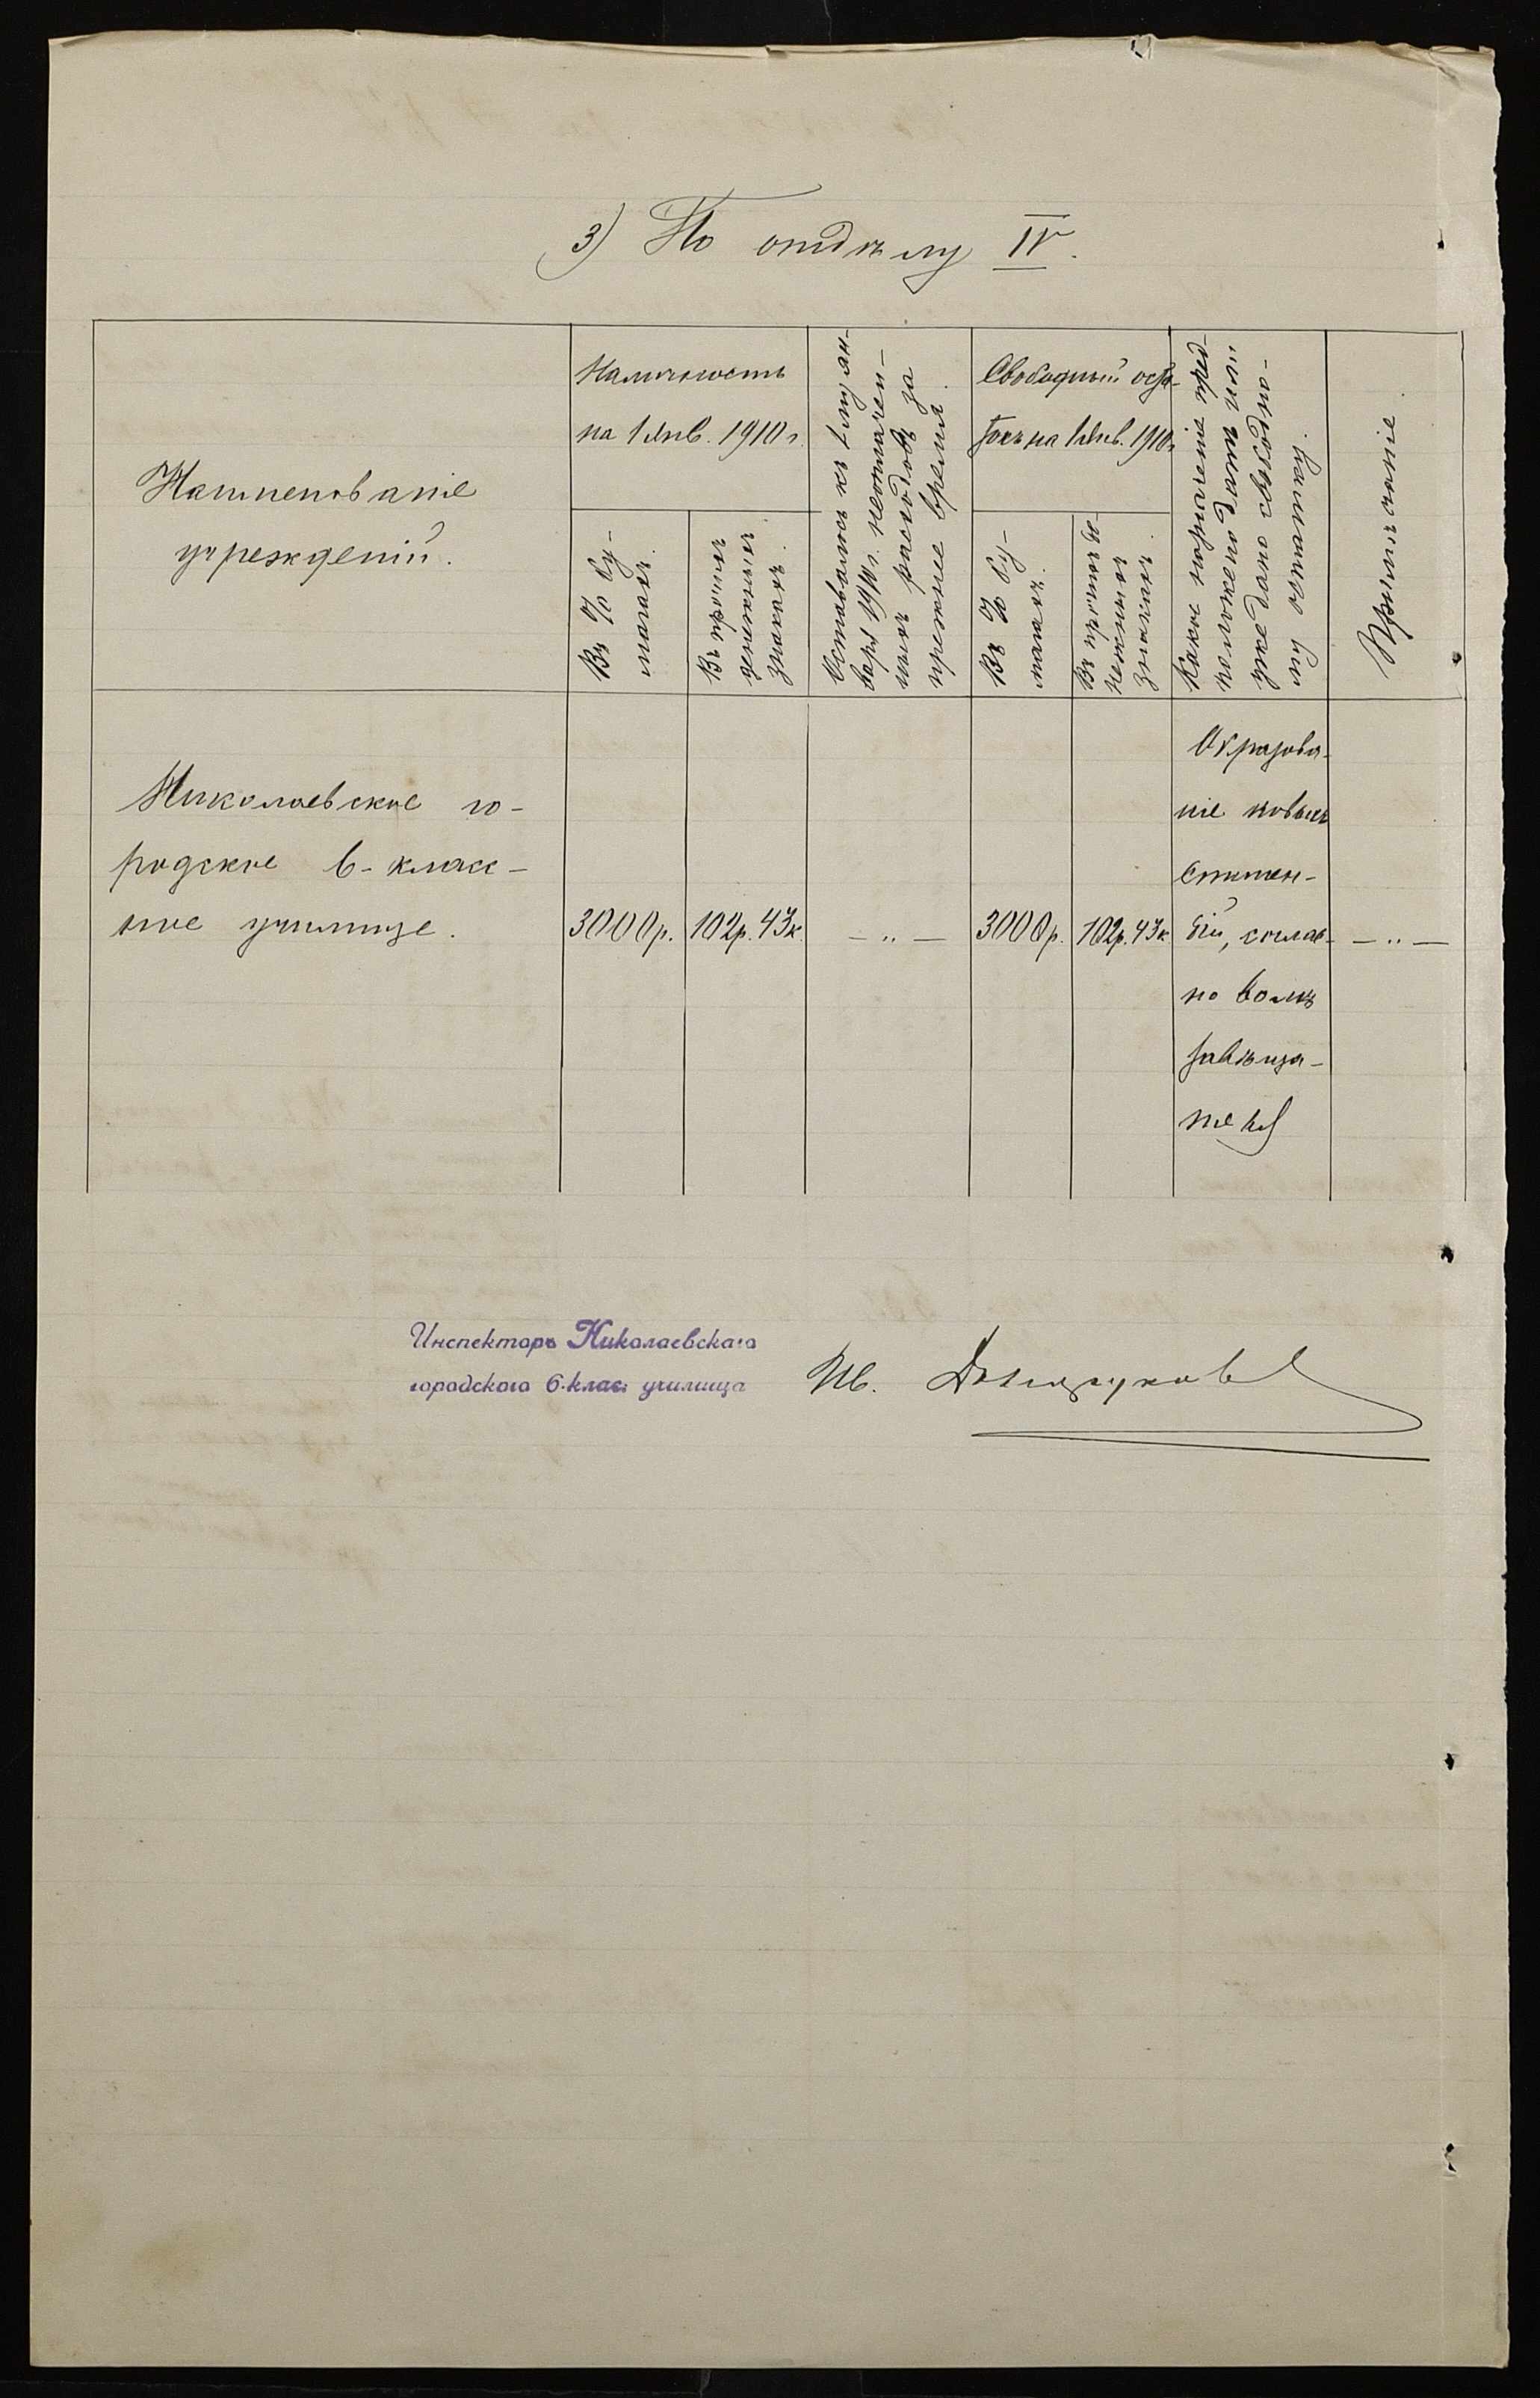 3) По отдѣлу IV.
Наименованіе
учрежденій.
Наличность
на 1 Янв. 1910 г.
Въ % бу-
магахъ.
Въ прочихъ
денежныхъ
знакахъ.
Оставалось къ 1-му ян-
варя 1910 г. неоплачен-
ныхъ расходовъ за
прежнее время.
Свободный оста-
токъ на 1 Янв. 1910 г.
Въ % бу-
магахъ.
Въ прочихъ де-
нежныхъ
знакахъ.
Какое назначеніе пред-
положено дать или
уже дано свободно-
му остатку.
Примѣчаніе.
Николаевское го-
родское 6-класс-
ное училище.
3000 р.
102 р. 43 к.
— „ —
3000 р.
102 р. 43 к.
Образова-
ніе новыхъ
стипен-
дій, соглас-
но волѣ
завѣща-
теля
— „ —
Инспекторъ Николаевскаго
городского 6-клас. училища
Ив.